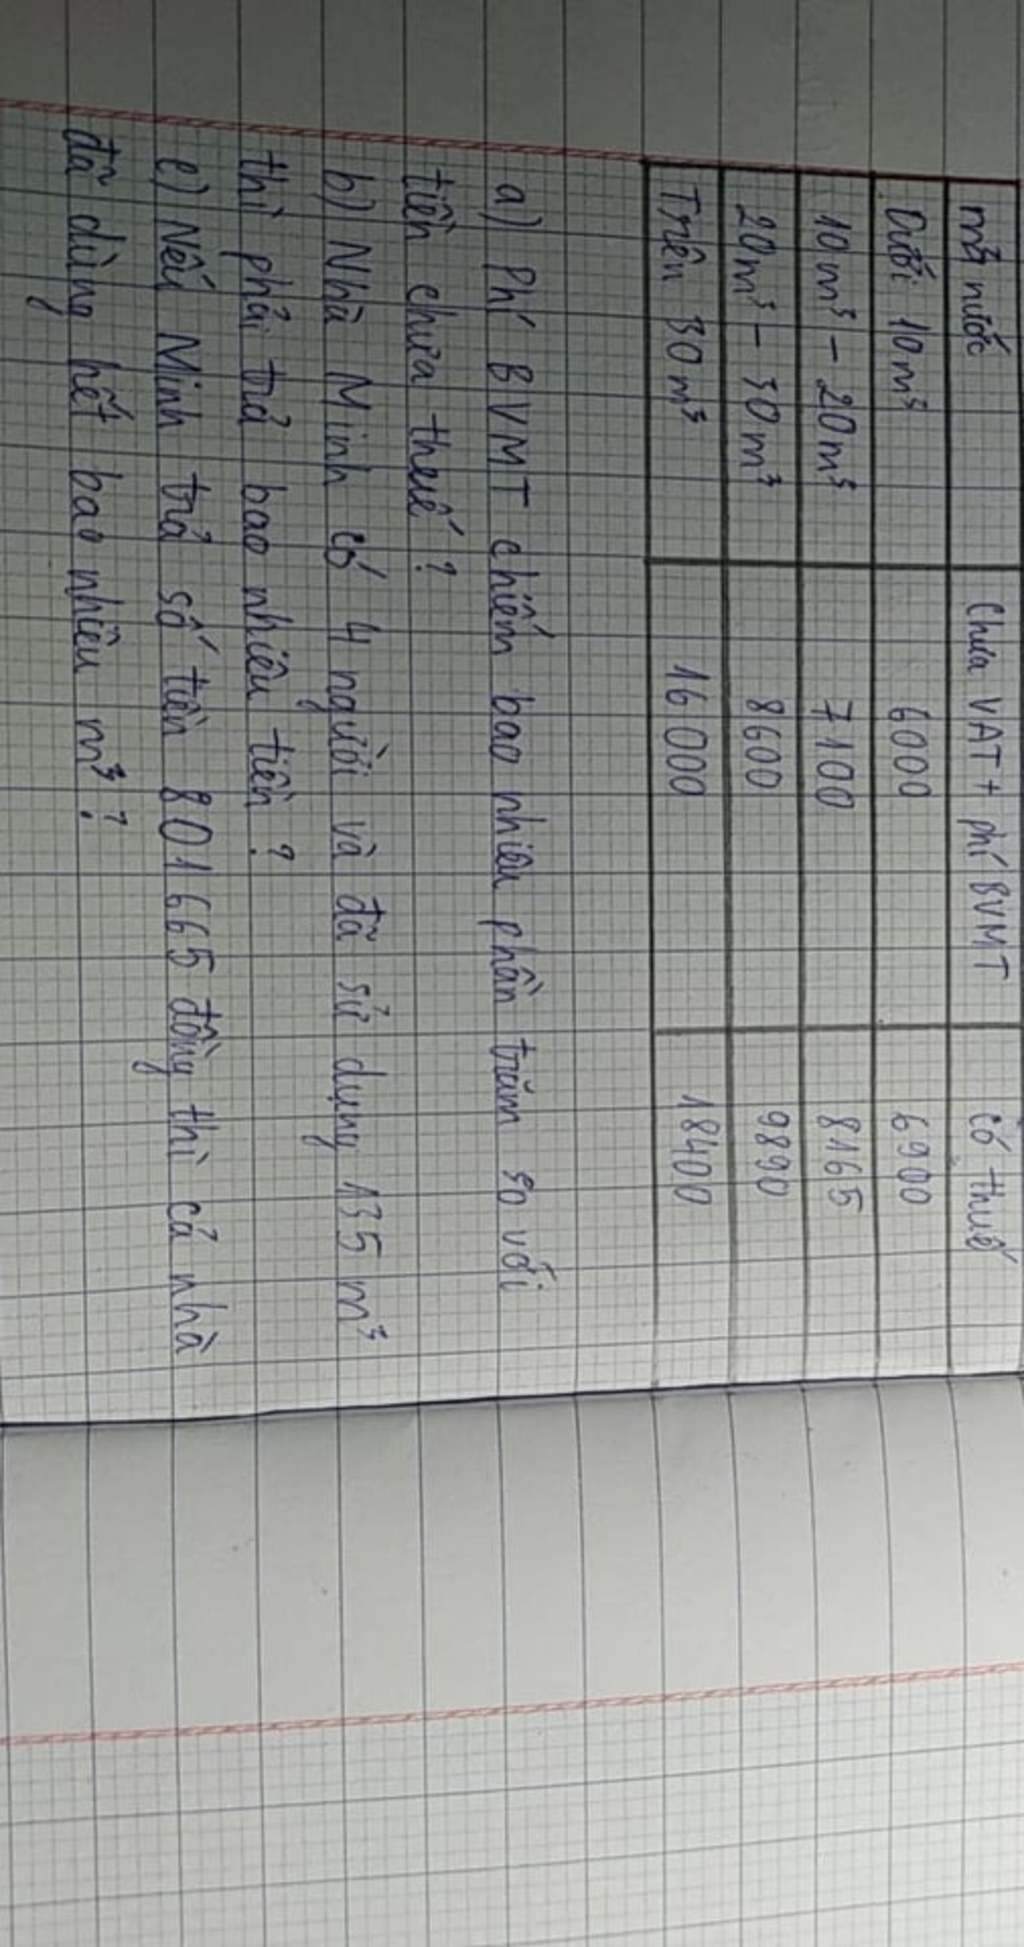 m³ nước Chưa VAT + phí BVMT Có thuế
Dưới 10m³ 6000 6900
10m³ - 20m³ 7100 8165
20m³ - 30m³ 8600 9890
Trên 30m³ 16000 18400
a) Phí BVMT chiếm bao nhiêu phần trăm so với
tiền chưa thuế?
b) Nhà Minh có 4 người và đã sử dụng 135m³
thì phải trả bao nhiêu tiền?
c) Nếu Minh trả số tiền 801665 đồng thì cả nhà
đã dùng hết bao nhiêu m³?